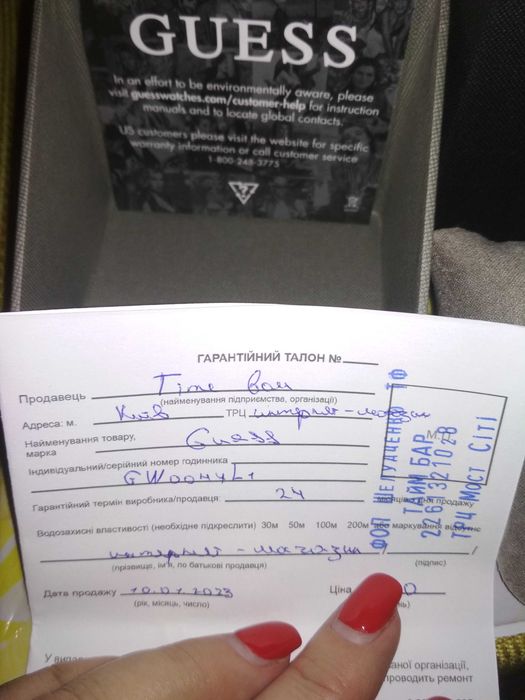 GUESS
In an effort to be environmentally aware, please
visit guesswatches.com/customer-help for instruction
manuals and to locate global contacts.
US customers please visit the website for specific
warranty information or call customer service
1-800-248-3775
?
ГАРАНТІЙНИЙ ТАЛОН №
Продавець Time
(найменування підприємства, організації)
Адреса: м. Київ ТРЦ интернет-магазин
Найменування товару,
марка Guess
Індивідуальний/серійний номер годинника
Гарантійний термін виробника/продавця: 24 місяців продажу
Водозахисні властивості (необхідне підкреслити) 30м 50м 100м 200м або маркування відсутнє
интернет-магазин / /
(прізвище, ім'я, по батькові продавця) (підпис)
Дата продажу 10.01.2023 Ціна 0
(рік, місяць, число)
ФОП ШЕЛУДЧЕНКО ТФ
ТАЙМ БАР
ТРЦ МОСТ СІТІ
М.
У
аної організації,
проводить ремонт